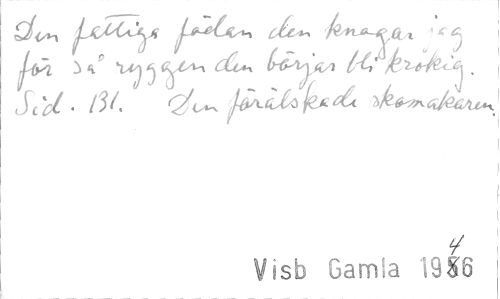 Den fattiga födan den knogar jag
för så ryggen den börjar bli krokig.
Sid. 131. Den förälskade skomakaren.
4
Visb Gamla 1956